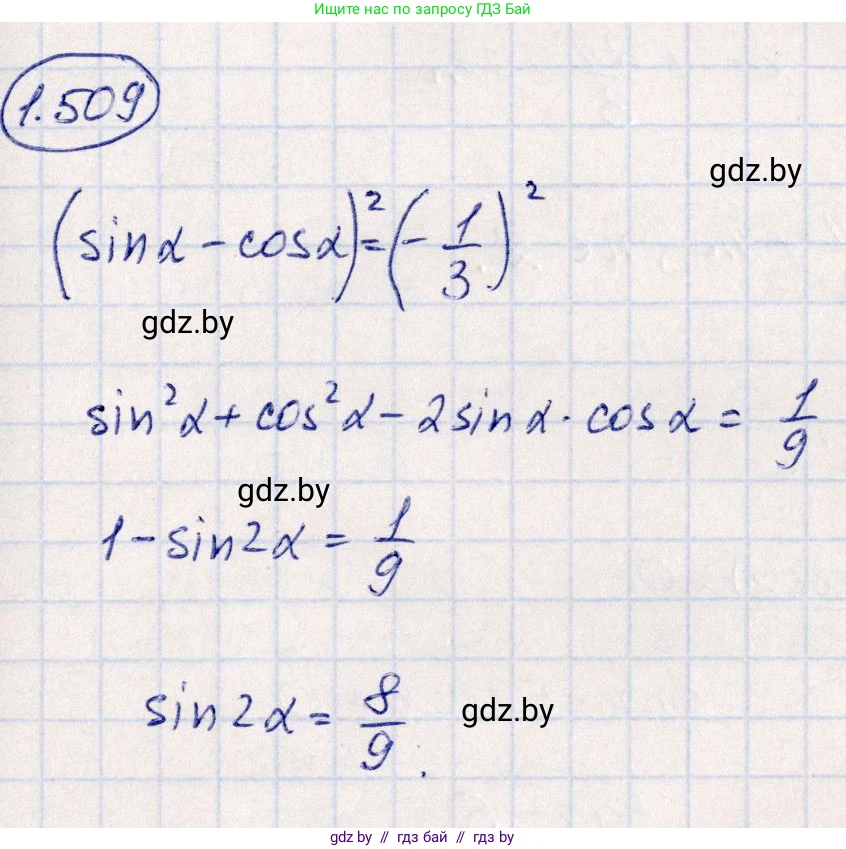 Ищите нас по запросу ГДЗ Бай
1.509
gdz.by
(sinα - cosα)² = (-1/3)²
gdz.by
sin²α + cos²α - 2sinα · cosα = 1/9
gdz.by
1 - sin2α = 1/9
sin2α = 8/9.
gdz.by
gdz by // гдз бай // гдз by